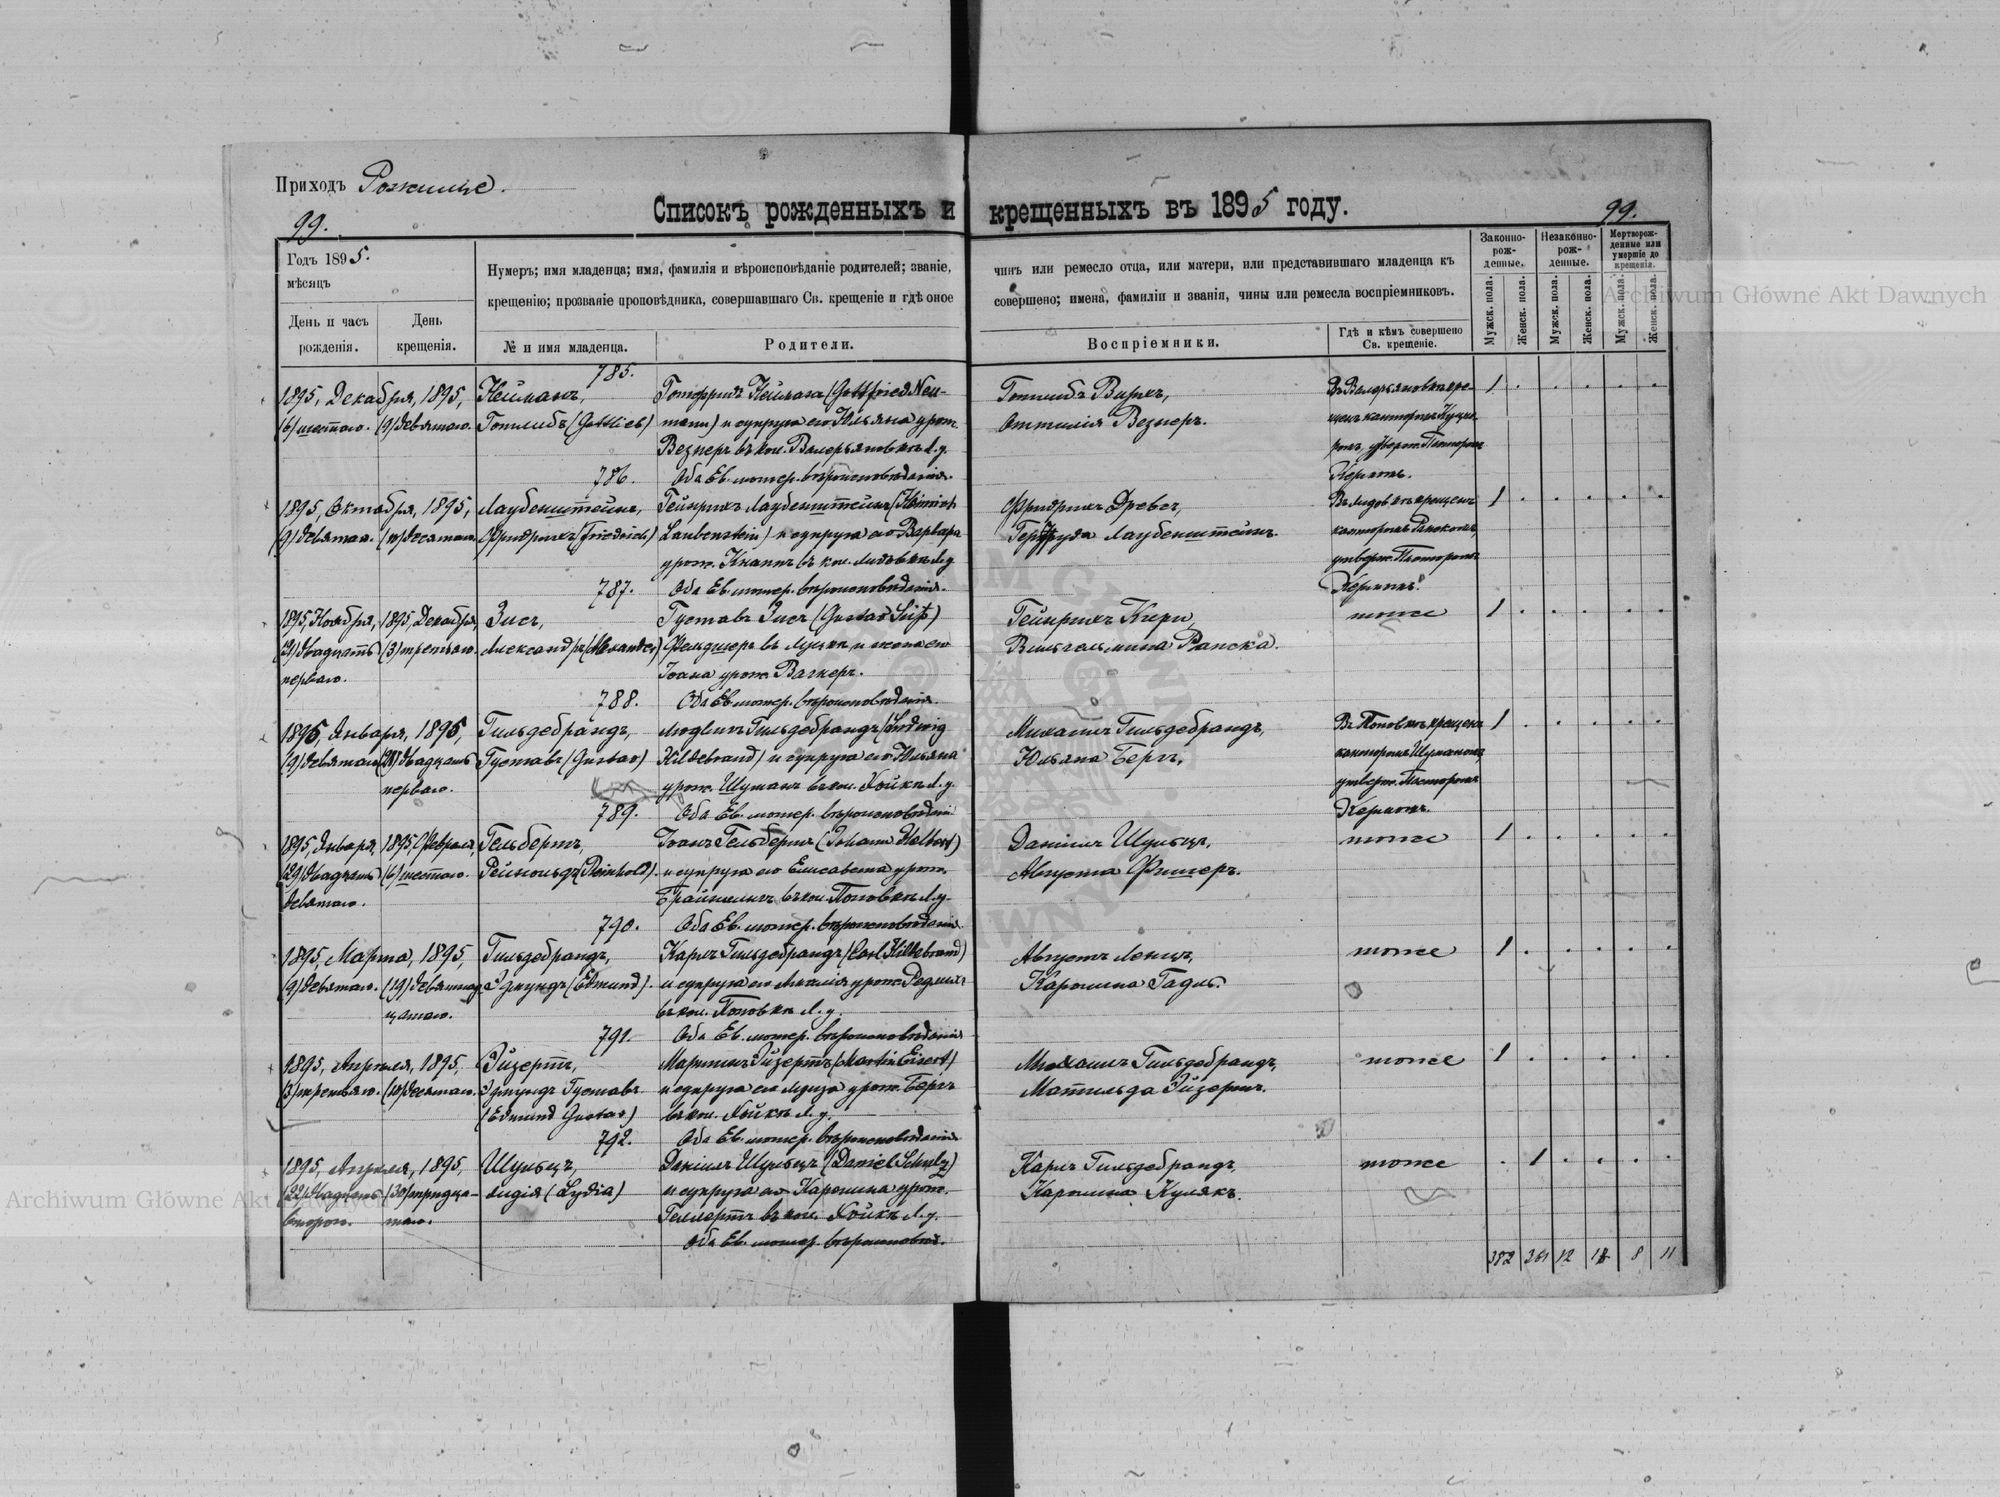 Приходъ Рожище.
99.
Списокъ рожденныхъ и крещенныхъ въ 1895 году.
99.
Годъ 1895.
мѣсяцъ
День и часъ рожденія.
День крещенія.
Нумеръ; имя младенца; имя, фамилія и вѣроисповѣданіе родителей; званіе, чинъ или ремесло отца, или матери, или представившаго младенца къ
крещенію; прозваніе проповѣдника, совершавшаго Св. крещеніе и гдѣ оное совершено; имена, фамиліи и званія, чины или ремесла воспріемниковъ.
№ и имя младенца.
Родители.
Воспріемники.
Гдѣ и кѣмъ совершено Св. крещеніе.
Законно-рож-денные.
Незаконно-рож-денные.
Мертворож-денные или умершіе до крещенія.
Мужск. пола.
Женск. пола.
Мужск. пола.
Женск. пола.
Мужск. пола.
Женск. пола.
785.
1895, Декабря, 1895, Нейманъ, Готфридъ Нейманъ (Gottfried Neu- Готлибъ Виркъ, 1
(6) шестаго. (9) девятаго. Готлибъ (Gottlieb) mann) и супруга его Юльяна урож. Оттилія Везнеръ.
Везнеръ въ кол. Валерьяновкѣ Л. у.
786. Оба Ев. лютер. вѣроисповѣданія.
1895, Октября, 1895, Лаубенштейнъ, Гейнрихъ Лаубенштейнъ (Heinrich Фридрихъ Древсъ, 1
(9) девятаго. (10) десятаго. Фридрихъ (Friedrich) Laubenstein) и супруга его Варвара Гертруда Лаубенштейнъ.
урож. Кнаппъ въ кол. Людовкѣ Л. у.
787. Оба Ев. лютер. вѣроисповѣданія.
1895, Ноября, 1895, Декабря, Зисъ, Густавъ Зисъ (Gustav Süß) Гейнрихъ Кири, тоже 1
(21) двадцать (3) третьяго. Александръ (Alexander) Фельдшеръ въ Луцкѣ и жена его Вильгельмина Ранска.
перваго. Іоана урож. Вагнеръ.
788. Оба Ев. лютер. вѣроисповѣданія.
1895, Января, 1895, Гильдебрандъ, Людвигъ Гильдебрандъ (Ludwig Михаилъ Гильдебрандъ, Въ Поповкѣ крещенъ 1
(9) девятаго (21) двадцать Густавъ (Gustav) Hildebrand) и супруга его Юльяна Юльяна Бергъ, канторомъ Шуманомъ,
перваго. урож. Шуманъ въ кол. Хойкѣ Л. у. утверж. Пасторомъ
789. Оба Ев. лютер. вѣроисповѣданія Керномъ.
1895, Января, 1895, Февраля, Гельбертъ, Іоанъ Гельбертъ (Johann Helbert) Даніилъ Шульцъ, тоже 1
(29) двадцать (6) шестаго. Рейнольдъ (Reinhold). и супруга его Елисавета урож. Августа Фишеръ.
девятаго. въ кол. Поповкѣ Л. у.
790. Оба Ев. лютер. вѣроисповѣданія.
1895, Марта, 1895, Гильдебрандъ, Карлъ Гильдебрандъ (Carl Hildebrand) Августъ Ленцъ, тоже 1
(9) девятаго. (19) девятнад- Эдмундъ (Edmund). и супруга его Амалія урож. Каролина Гадиг.
цатаго. въ кол. Поповкѣ Л. у.
791. Оба Ев. лютер. вѣроисповѣданія
1895, Апрѣля, 1895, Эйзертъ, Мартинъ Эйзертъ (Martin Eisert) Михаилъ Гильдебрандъ, тоже 1
(3) третьяго. (10) десятаго. Эдмундъ Густавъ и супруга его Луиза урож. Бергъ Матильда Эйзертъ.
(Edmund Gustav) въ кол. Хойкѣ Л. у.
792. Оба Ев. лютер. вѣроисповѣданія.
1895, Апрѣля, 1895, Шульцъ, Даніилъ Шульцъ (Daniel Schulz) Карлъ Гильдебрандъ, тоже 1
(22) двадцать (30) тридца- Лидія (Lydia) и супруга его Каролина урож. Каролина Кулякъ.
второго. таго. Геллертъ въ кол. Хойкѣ Л. у.
Оба Ев. лютер. вѣроисповѣд.
382 361 12 18 8 11
Archiwum Główne Akt Dawnych
Archiwum Główne Akt Dawnych